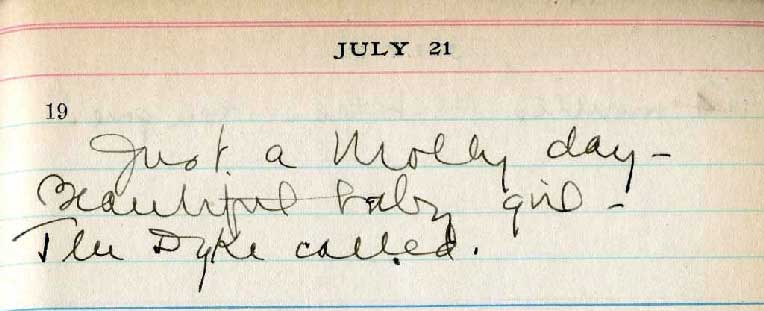 JULY 21
19
Just a Molly day -
Beautiful baby girl -
Dyke called.